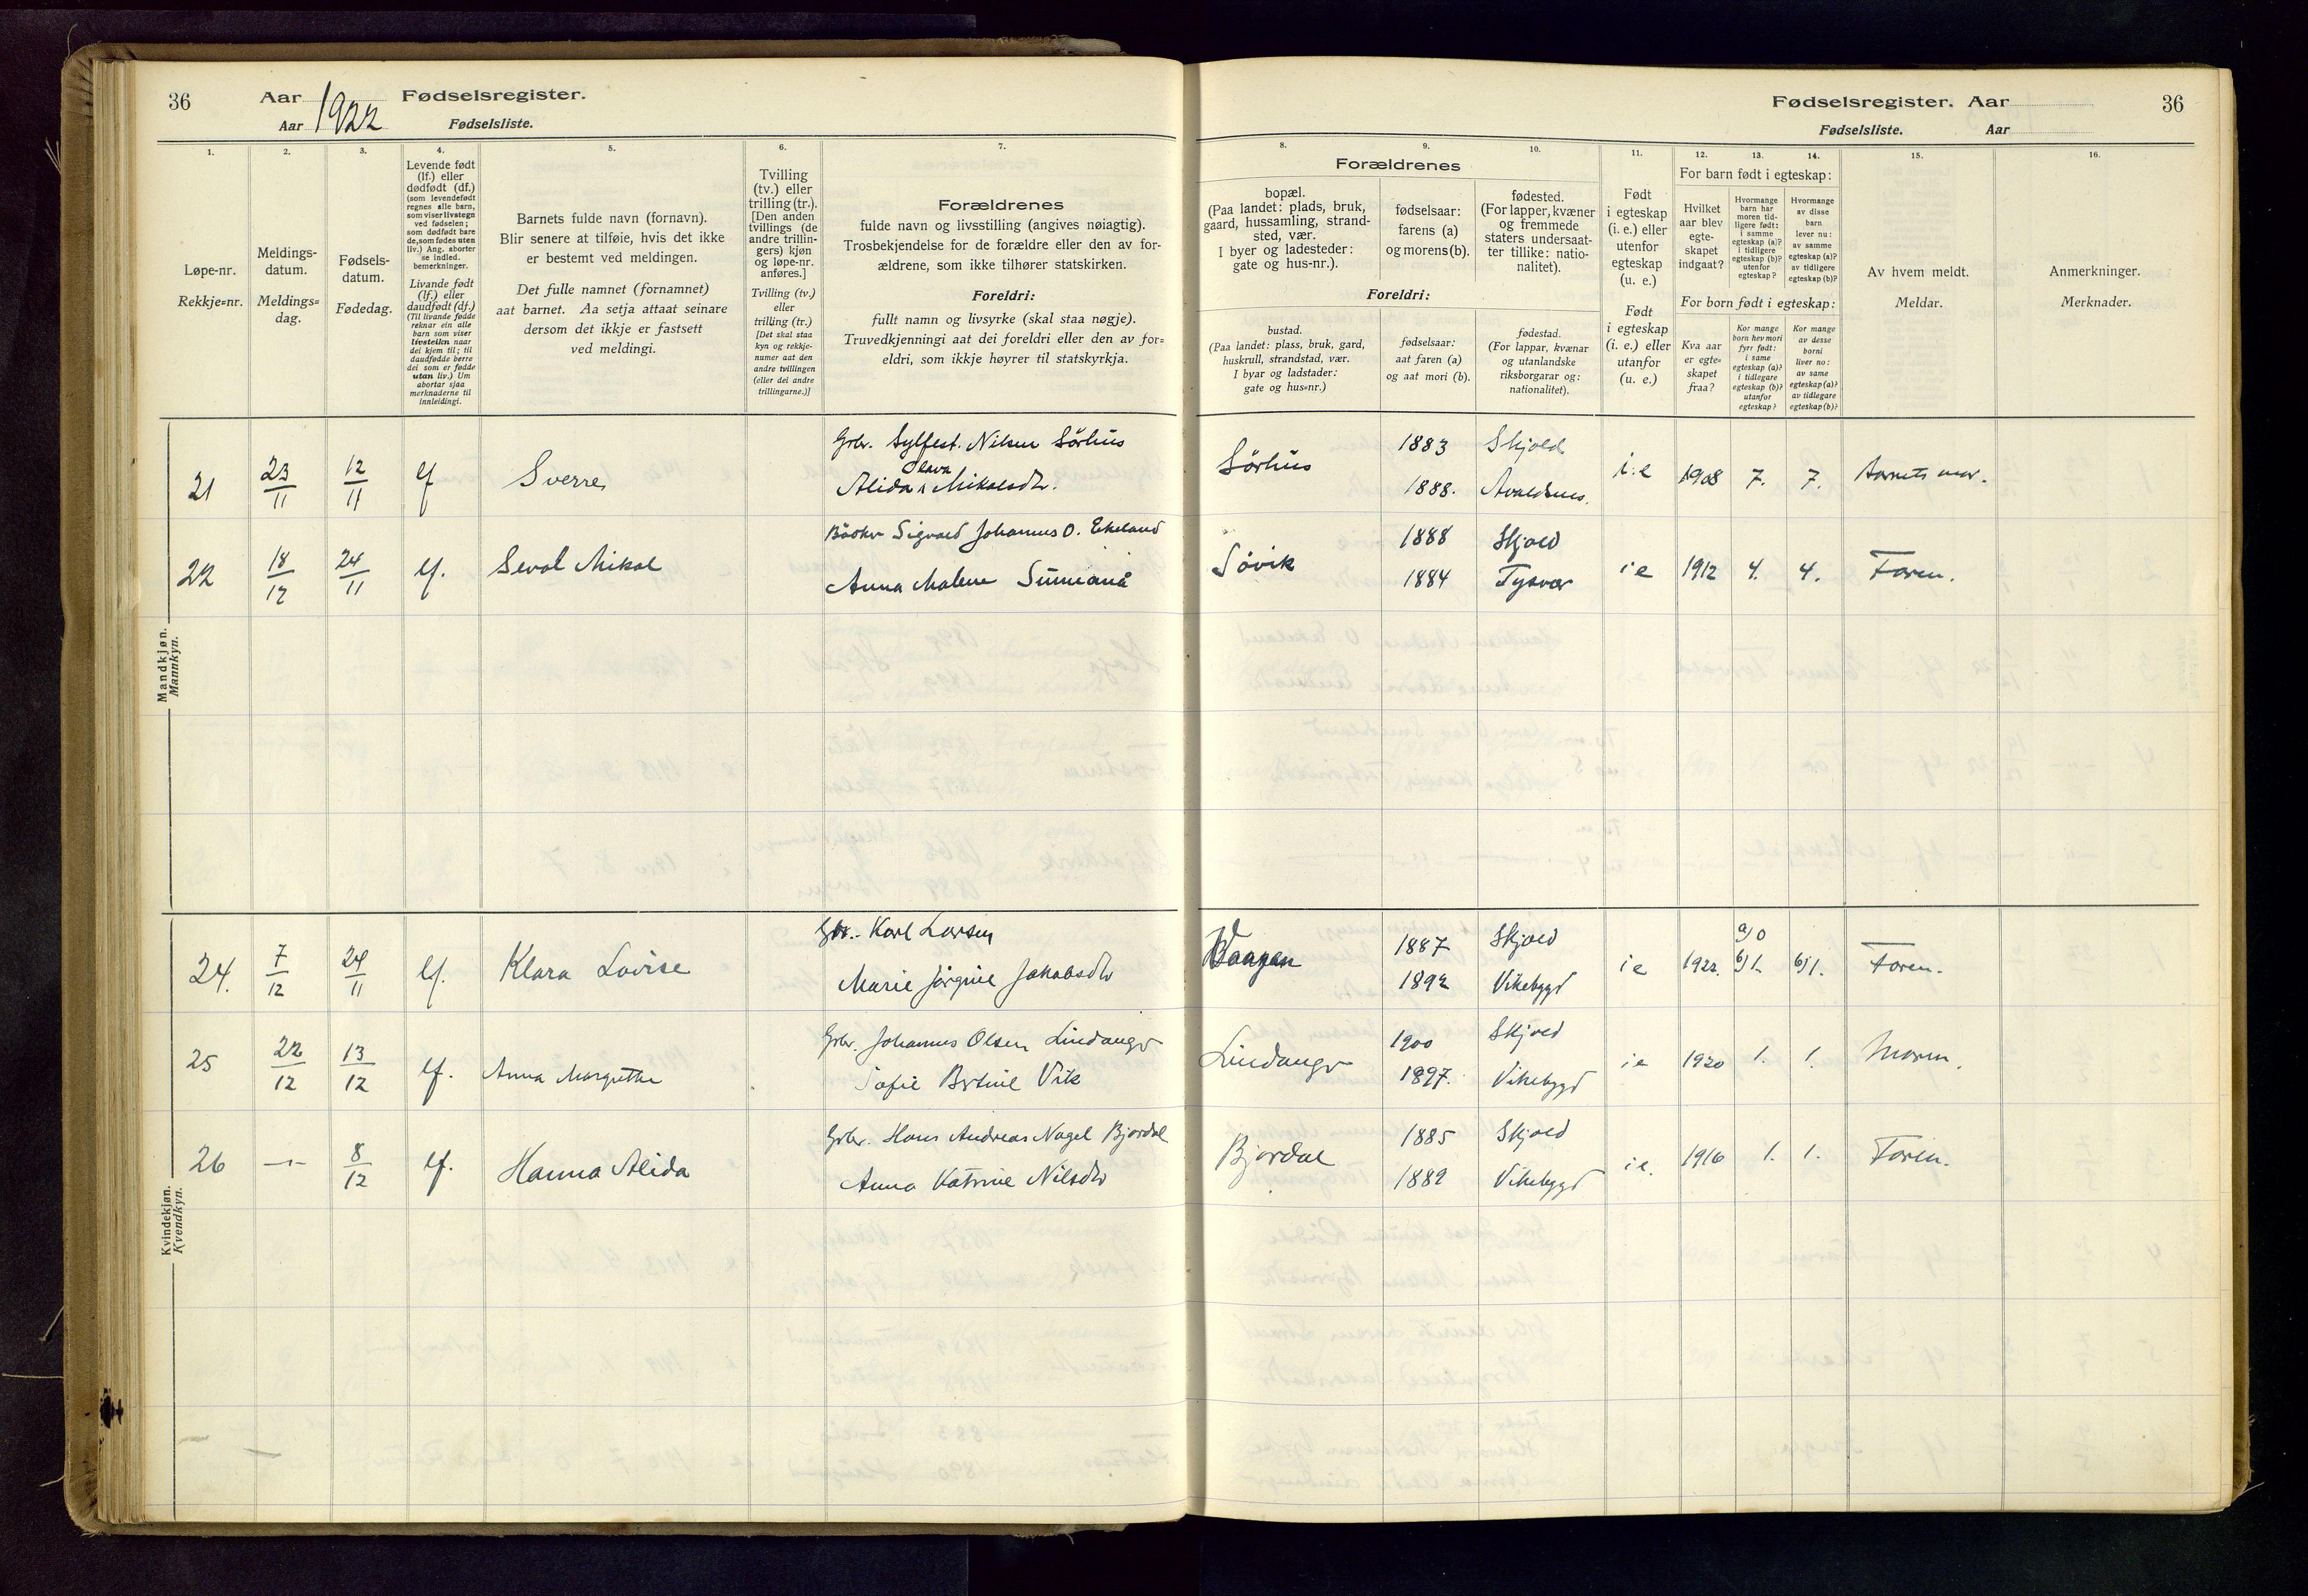 36 Aar 1922 Fødselsregister.
Aar Fødselsliste.
1. 2. 3. 4. 5. 6. 7.
Løpe-nr.
Rekkje=nr.
Meldings-
datum.
Meldings=
dag.
Fødsels-
datum.
Fødedag.
Levende født
(lf.) eller
dødfødt (df.)
(som levendefødt
regnes alle barn,
som viser livstegn
ved fødselen;
som dødfødt bare
de, som fødes uten
liv.) Ang. aborter
se indled.
bemerkninger.
Livande født
(lf.) eller
daudfødt (df.)
(Til livande fødde
reknar ein alle
barn som viser
livsteikn naar
dei kjem til; til
daudfødde berre
dei som er fødde
utan liv.) Um
abortar sjaa
merknaderne til
innleidingi.
Barnets fulde navn (fornavn).
Blir senere at tilføie, hvis det ikke
er bestemt ved meldingen.
Det fulle namnet (fornamnet)
aat barnet. Aa setja attaat seinare
dersom det ikkje er fastsett
ved meldingi.
Tvilling
(tv.) eller
trilling (tr.).
[Den anden
tvillings (de
andre trillin-
gers) kjøn
og løpe-nr.
anføres.]
Tvilling (tv.)
eller
trilling (tr.)
[Det skal staa
kyn og rekkje-
numer aat den
andre tvillingen
(eller dei andre
trillingarne.)]
Forældrenes
fulde navn og livsstilling (angives nøiagtig).
Trosbekjendelse for de forældre eller den av for-
ældrene, som ikke tilhører statskirken.
Foreldri:
fullt namn og livsyrke (skal staa nøgje).
Truvedkjenningi aat dei foreldri eller den av for=
eldri, som ikkje høyrer til statskyrkja.
Mandkjøn.
Mannkyn.
21 23/11 12/11 lf Sverre Grbr. Sylfest. Nilsen Sörhus
Olava
Alida Mikalsdtr.
22 18/12 24/11 lf. Seval Mikal Bödker Sigvald Johannes O. Ekeland
Anna Malene Sunnanå
Kvindekjøn.
Kvendkyn.
24. 7/12 24/11 lf. Klara Lovise Gbr. Karl Larsen
Marie Jørgine Jakobsdtr
25 22/12 13/12 lf. Anna Margrethe Grbr. Johannes Olsen Lindanger
Sofie Bertine Vik
26 -"- 8/12 lf. Hanna Alida Grbr. Hans Andreas Nagel Bjordal
Anna Katrine Nilsdtr
Fødselsregister. Aar 36
Fødselsliste. Aar
8. 9. 10. 11. 12. 13. 14. 15. 16.
Forældrenes
bopæl.
(Paa landet: plads, bruk,
gaard, hussamling, strand-
sted, vær.
I byer og ladesteder:
gate og hus-nr.).
fødselsaar:
farens (a)
og morens (b).
fødested.
(For lapper, kvæner
og fremmede
staters undersaat-
ter tillike: natio-
nalitet).
Foreldri:
bustad.
(Paa landet: plass, bruk, gard,
huskrull, strandstad, vær.
I byar og ladstader:
gate og hus=nr.)
fødselsaar:
aat faren (a)
og aat mori (b).
fødestad.
(For lappar, kvænar
og utanlandske
riksborgarar og:
nationalitet).
Født
i egteskap
(i. e.) eller
utenfor
egteskap
(u. e.)
Født
i egteskap
(i. e.) eller
utanfor
(u. e.)
For barn født i egteskap:
Hvilket
aar blev
egte-
skapet
indgaat?
Hvormange
barn har
moren tid-
ligere født:
i samme
egteskap (a)?
i tidligere
egteskap (b)?
utenfor
egteskap?
Hvormange
av disse
barn
lever nu:
av samme
egteskap (a)?
av tidligere
egteskap (b)?
For born født i egteskap:
Kva aar
er egte=
skapet
fraa?
Kor mange
born hev mori
fyrr født:
i same
egteskap (a)?
i tidlegare
egteskap (b)?
utanfor
egteskap?
Kor mange
av desse
borni
liver no:
av same
egteskap (a)?
av tidlegare
egteskap (b)?
Av hvem meldt.
Meldar.
Anmerkninger.
Merknader.
Sörhus 1883 Skjold i.e 1908 7. 7. Barnets mor.
1888. Avaldsnes.
Sövik 1888 Skjold i e 1912 4. 4. Faren.
1884 Tysvær
Vaagen 1887 Skjold i e 1922. a) 0 b) 1. b) 1. Faren.
1892 Vikebygd
Lindanger 1900 Skjold i e 1920 1. 1. Moren.
1897. Vikebygd
Bjordal 1885 Skjold i e. 1916 1. 1. Faren.
1882 Vikebygd